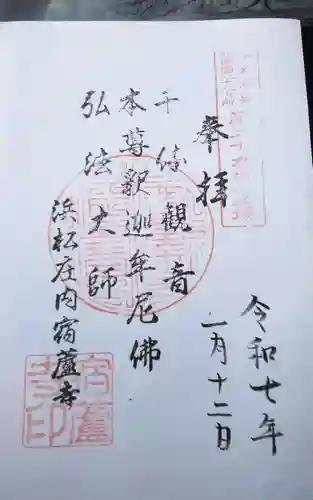 奉拝
令和七年
一月十二日
千体観音
本尊釈迦牟尼佛
弘法大師
浜松庄内宿蘆寺
宿蘆寺印